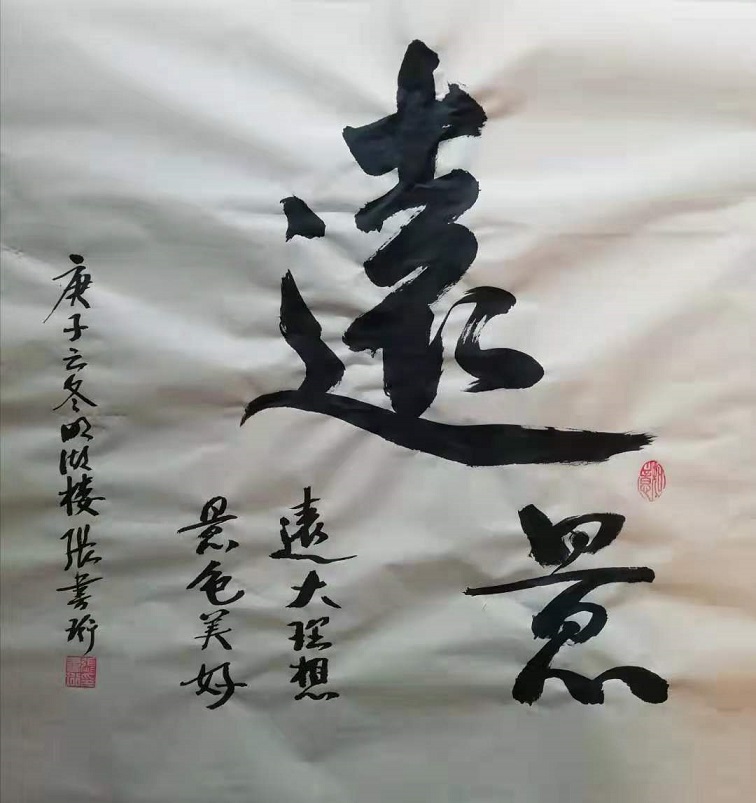 遠
景
遠大理想
景色美好
庚子云冬明湖楼張書珩